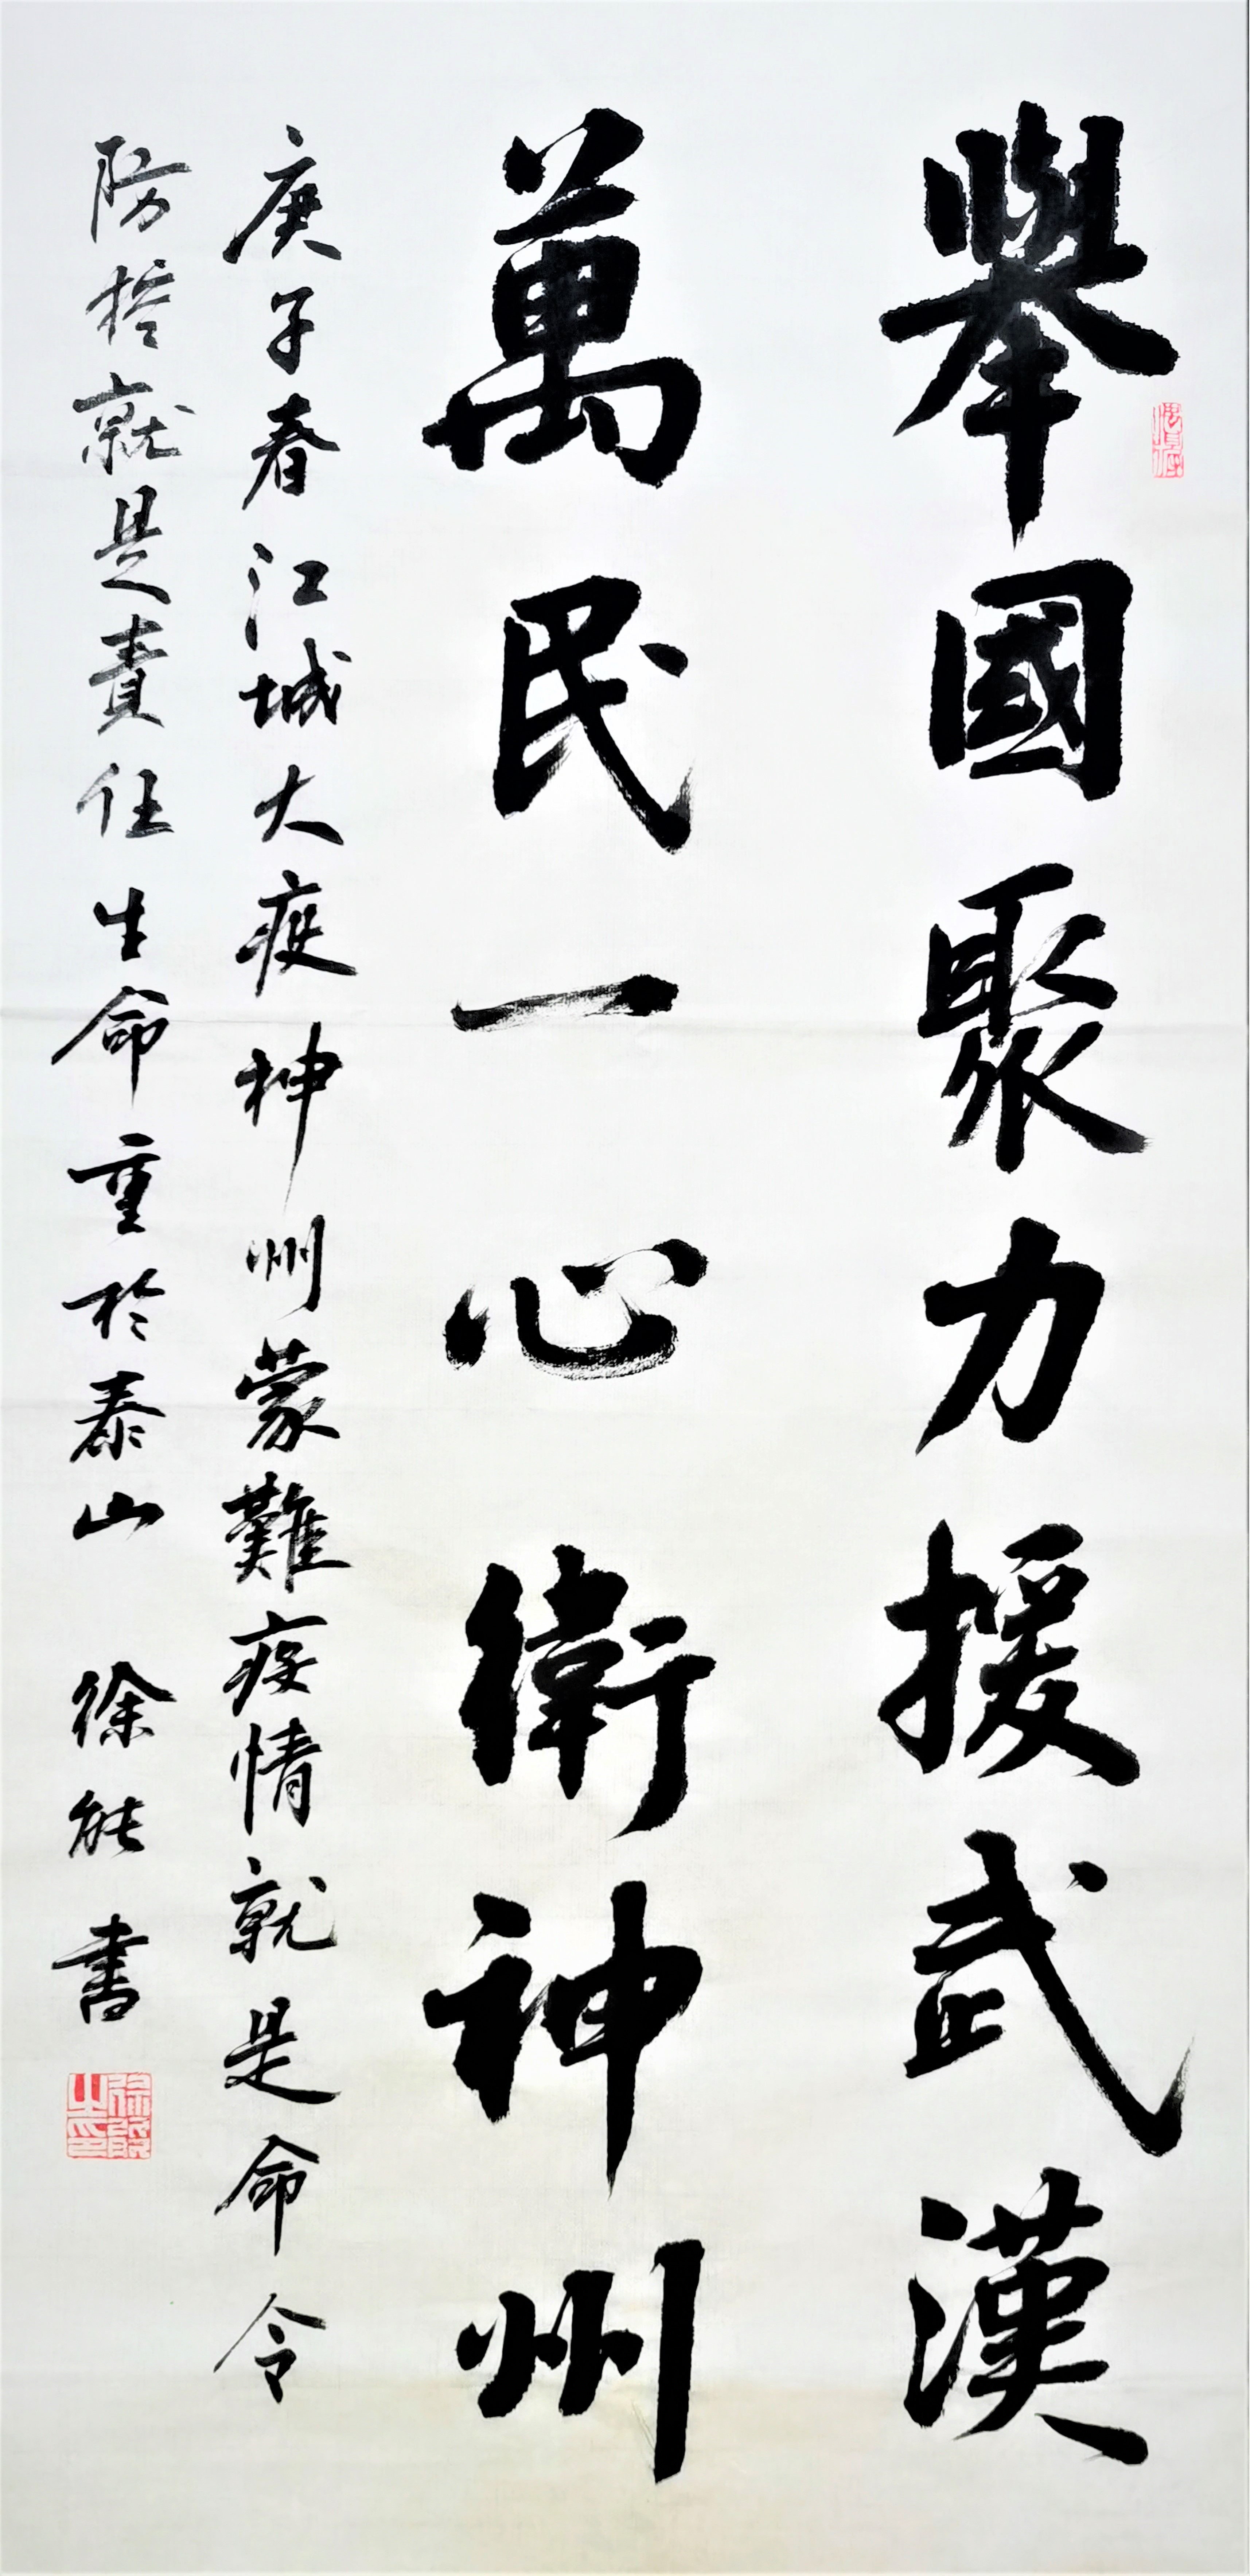 舉國聚力援武漢
萬民一心衛神州
庚子春江城大疫神州蒙難疫情就是命令
防控就是責任生命重於泰山 徐能書